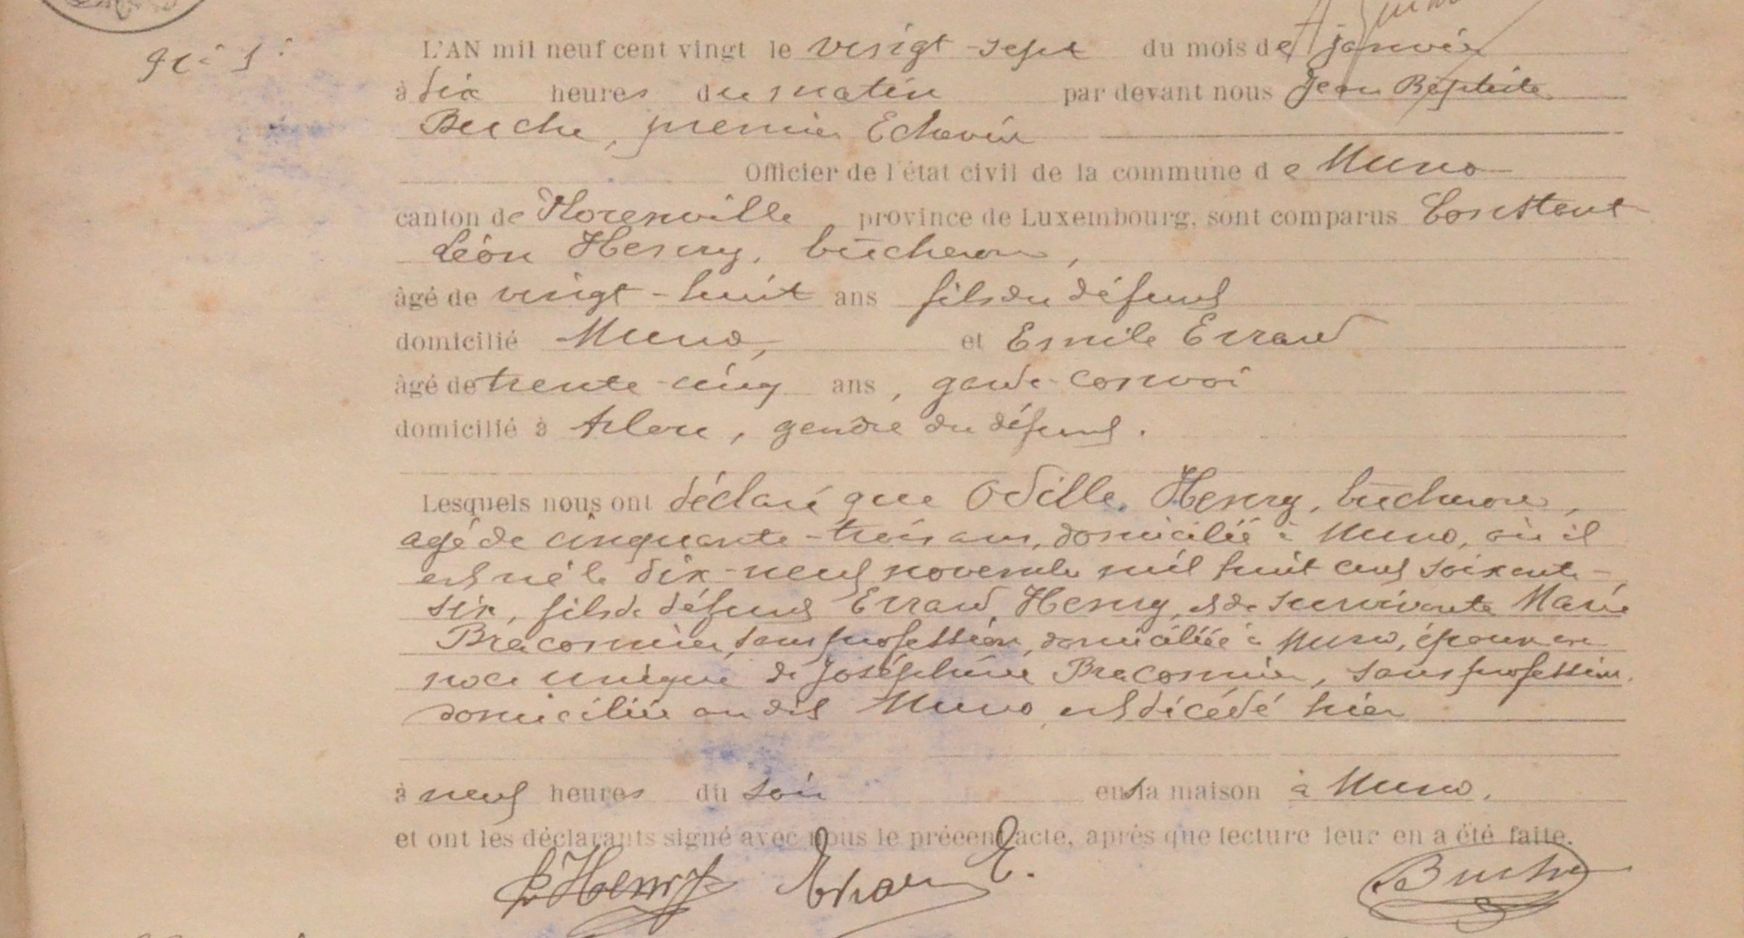 N° 1
L'AN mil neuf cent vingt le vingt-sept du mois de janvier
à dix heures du matin par devant nous Jean Baptiste
Buche, premier Echevin
Officier de l'état civil de la commune de Muno
canton de Florenville, province de Luxembourg, sont comparus Constant
Léon Henry, bûcheron,
âgé de vingt-huit ans fils du défunt
domicilié Muno, et Emile Errard
âgé de trente-cinq ans, garde-convoi
domicilié à Arlon, gendre du défunt.
Lesquels nous ont déclaré que Odille Henry, bûcheron,
agé de cinquante-trois ans, domicilié à Muno, où il
est né le dix-neuf novembre mil huit cent soixante-
six, fils de défunt Errard Henry et de survivante Marie
Braconnier, sans profession, domiciliée à Muno, époux en
noce unique de Joséphine Braconnier, sans profession,
domiciliée au dit Muno est décédé hier
à neuf heures du soir en sa maison à Muno.
et ont les déclarants signé avec nous le précent acte, après que lecture leur en a été faite.
L Henry Errard E. Buche